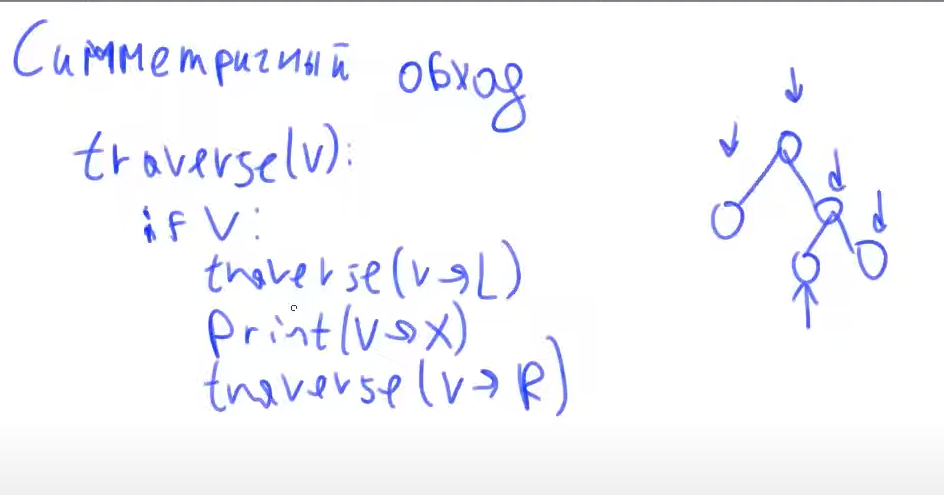 Симметричный обход
traverse(v):
if v:
traverse(v→L)
print(v→x)
traverse(v→R)